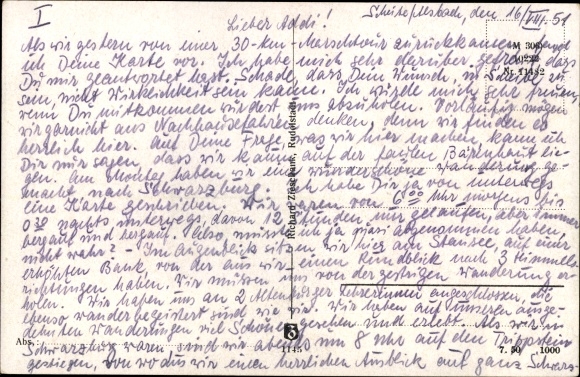 I
Scheibe/Alsbach, den 16/VIII. 51
Lieber Addi!
Als wir gestern von einer 30-km-Marschtour zurückkamen, fand
ich Deine Karte vor. Ich habe mich sehr darüber gefreut, dass
Du mir geantwortet hast. Schade, dass Dein Wunsch, in zu
sein, nicht Wirklichkeit sein kann. Ich würde mich sehr freuen,
wenn Du mitkommen würdest uns abzuholen. Vorläufig mögen
wir garnicht ans Nachhausefahren denken, denn wir finden es
herrlich hier. Auf Deine Frage, was wir hier machen, kann ich
Dir nur sagen, dass wir kaum auf der faulen Bärenhaut lie-
gen. Am Montag haben wir eine wunderschöne Wanderung ge-
macht nach Schwarzburg. Ich habe Dir ja von unterwegs
eine Karte geschrieben. Wir waren von 6.00 Uhr morgens bis
0.30 nachts unterwegs, davon 12 Stunden nur gelaufen, aber immer
bergauf und bergauf. Also, müsste ich ja quasi abgenommen haben,
nicht wahr? - Im Augenblick sitzen wir hier am Stausee, auf einer
erhöhten Bank, von der aus wir einen Rundblick nach 3 Himmels-
richtungen haben. Wir müssen uns von der gestrigen Wanderung er-
holen. Wir haben uns an 2 Altenburger Lehrerinnen angeschlossen, die
ebenso wanderbegeistert sind wie wir. Wir haben auf unseren ausge-
dehnten Wanderungen viel Schönes gesehen und erlebt. Als wir in
Schwarzburg waren, sind wir abends um 8 Uhr auf den Trippstein
gestiegen, von wo aus wir einen herrlichen Ausblick auf ganz Schwarz-
M 309
Nr. 11482
Richard Zieschank, Rudolstadt
Abs.:
3
1145
7. 50 1000